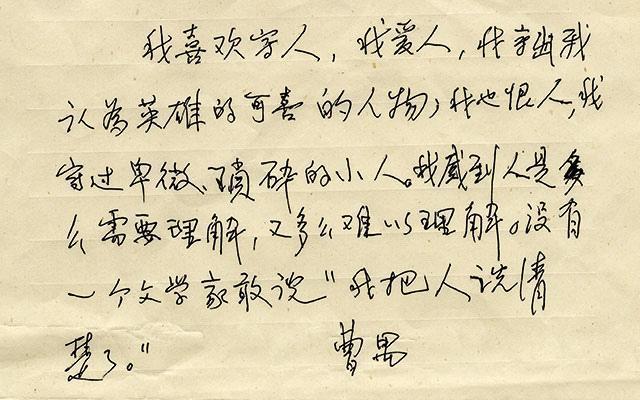 我喜欢写人，我爱人，我写出我
认为英雄的可喜的人物；我也恨人，我
写过卑微、琐碎的小人。我感到人是多
么需要理解，又多么难以理解。没有
一个文学家敢说“我把人说清
楚了。”　曹禺